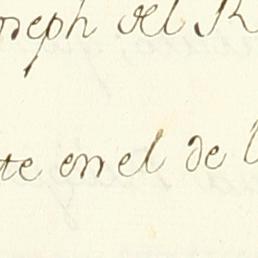 oseph del R
te en el de l